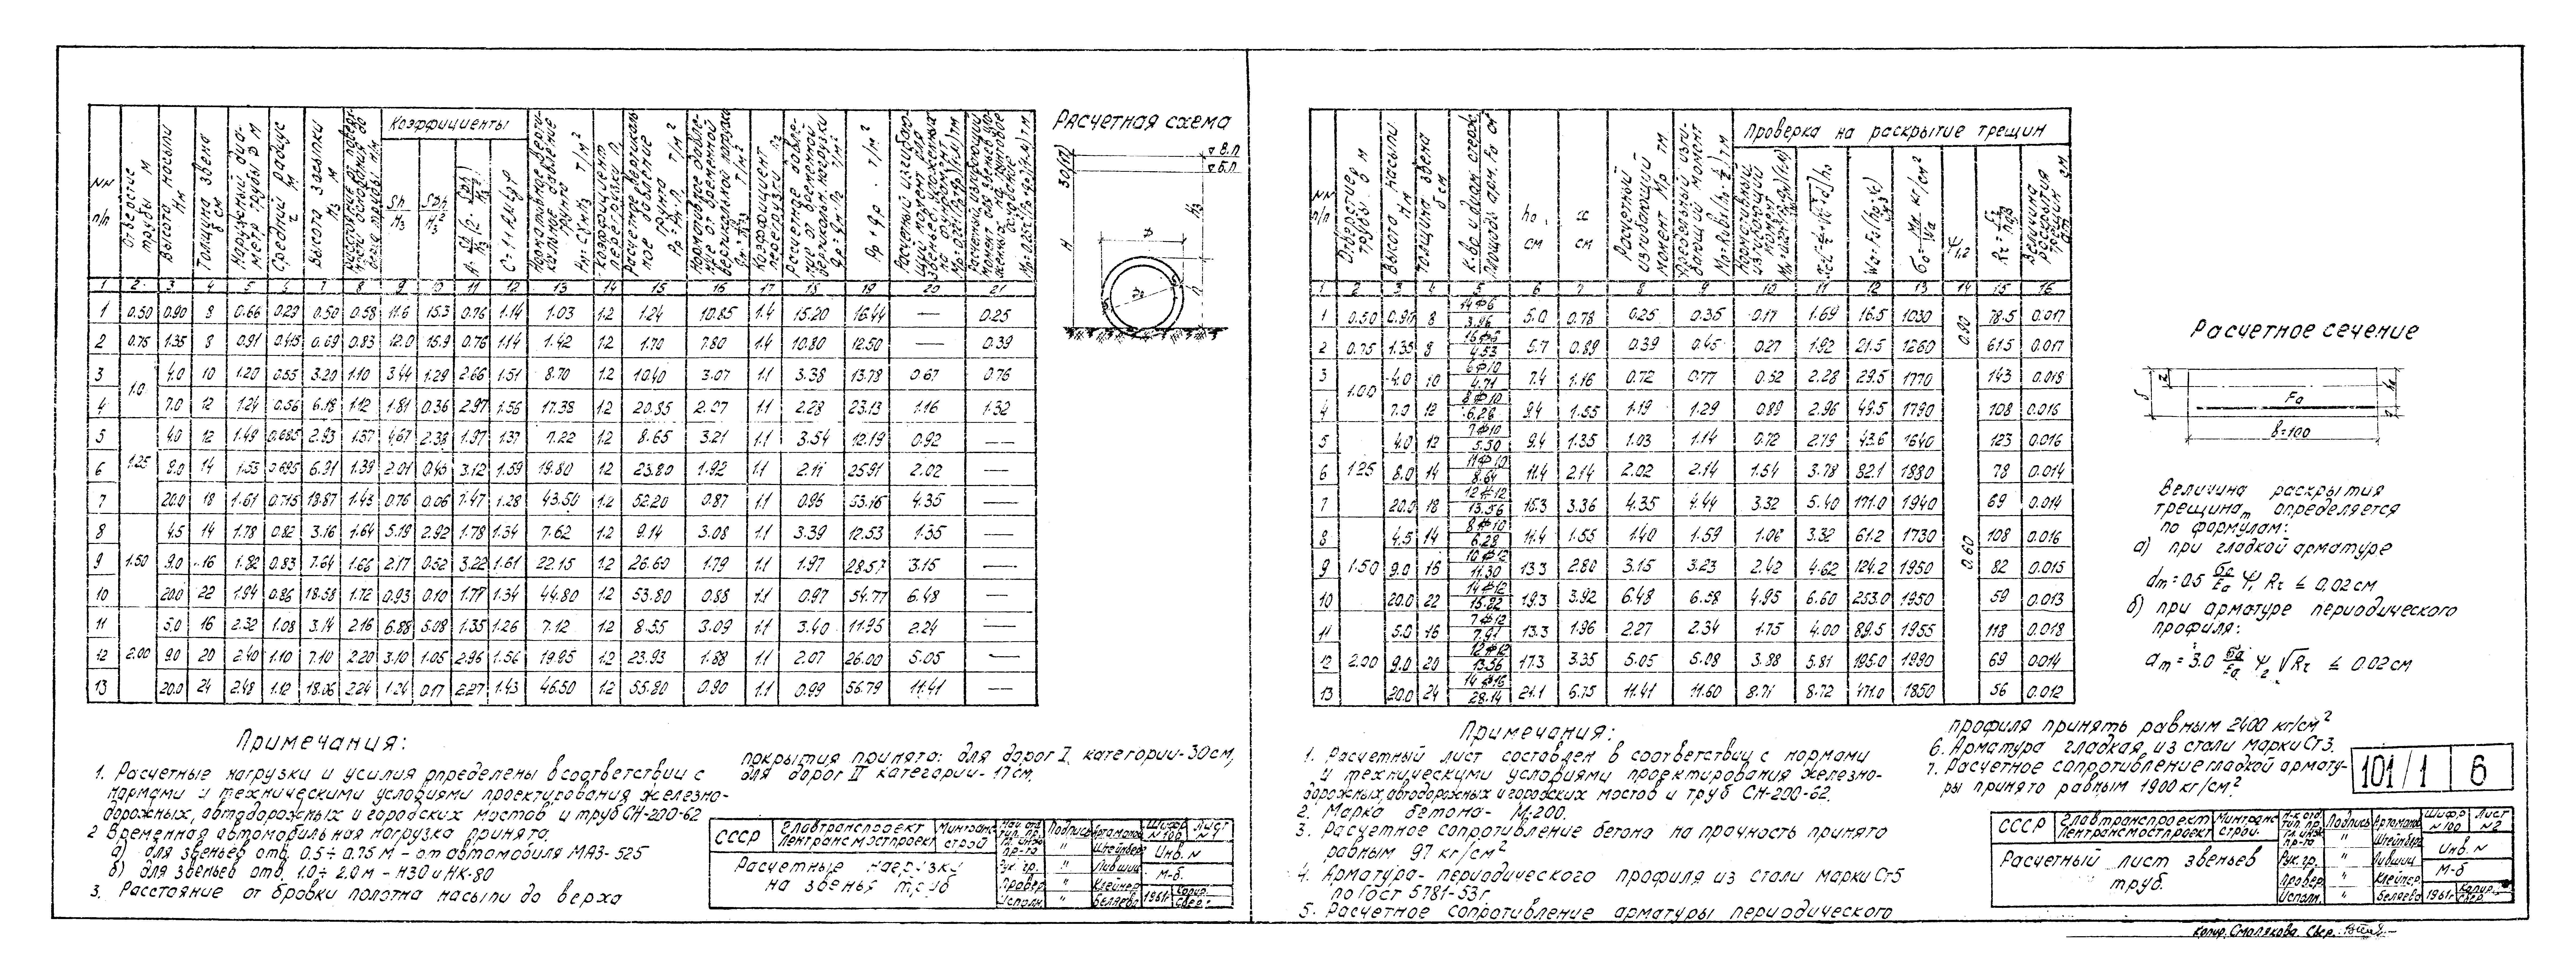 Коэффициенты
NN п/п
Отверстие трубы м
Высота насыпи Hм
Толщина звена δ см
Наружный диаметр трубы D м
Средний радиус r м
Высота засыпки H₃ м
1 2 3 4 5 6 7 8 9 10 11 12 13 14 15 16 17 18 19 20 21
1 0.50 0.90 8 0.66 0.29 0.50 0.58 11.6 15.3 0.76 1.14 1.03 1.2 1.24 10.85 1.4 15.20 16.44 — 0.25
2 0.75 1.35 8 0.91 0.415 0.69 0.83 12.0 15.9 0.76 1.14 1.42 1.2 1.70 7.80 1.4 10.80 12.50 — 0.39
3 1.0 4.0 10 1.20 0.55 3.20 1.10 3.44 1.29 2.66 1.51 8.70 1.2 10.40 3.07 1.1 3.38 13.78 0.67 0.76
4 7.0 12 1.24 0.56 6.18 1.12 1.81 0.36 2.97 1.56 17.38 1.2 20.85 2.07 1.1 2.28 23.13 1.16 1.32
5 1.25 4.0 12 1.49 0.685 2.93 1.37 4.67 2.38 1.97 1.37 7.22 1.2 8.65 3.21 1.1 3.54 12.19 0.92 —
6 8.0 14 1.53 0.695 6.91 1.39 2.01 0.46 3.12 1.59 19.80 1.2 23.80 1.92 1.1 2.11 25.91 2.02 —
7 20.0 18 1.61 0.715 18.87 1.43 0.76 0.06 1.47 1.28 43.50 1.2 52.20 0.87 1.1 0.96 53.16 4.35 —
8 1.50 4.5 14 1.78 0.82 3.16 1.64 5.19 2.92 1.78 1.34 7.62 1.2 9.14 3.08 1.1 3.39 12.53 1.35 —
9 9.0 16 1.82 0.83 7.64 1.66 2.17 0.52 3.22 1.61 22.15 1.2 26.60 1.79 1.1 1.97 28.57 3.15 —
10 20.0 22 1.94 0.86 18.58 1.72 0.93 0.10 1.77 1.34 44.80 1.2 53.80 0.88 1.1 0.97 54.77 6.48 —
11 2.00 5.0 16 2.32 1.08 3.14 2.16 6.88 5.08 1.35 1.26 7.12 1.2 8.55 3.09 1.1 3.40 11.95 2.24 —
12 9.0 20 2.40 1.10 7.10 2.20 3.10 1.05 2.96 1.56 19.95 1.2 23.93 1.88 1.1 2.07 26.00 5.05 —
13 20.0 24 2.48 1.12 18.06 2.24 1.24 0.17 2.27 1.43 46.50 1.2 55.80 0.90 1.1 0.99 56.79 11.41 —
Расчетная схема
В.П.
Б.П.
H
Примечания:
1. Расчетные нагрузки и усилия определены в соответствии с
нормами и техническими условиями проектирования железно-
дорожных, автодорожных и городских мостов и труб СН-200-62
2 Временная автомобильная нагрузка принята:
а) для звеньев отв. 0.5÷0.75 м - от автомобиля МАЗ-525
б) для звеньев отв. 1.0÷2.0 м - Н30 и НК-80
3. Расстояние от бровки полотна насыпи до верха
покрытия принято: для дорог I категории-30см,
для дорог II категории-17см.
СССР Главтранспроект Лентрансмостпроект Минтрансстрой
Подпись Артамонов Штейнберг Лившиц Клейнер Беляева
Шифр N 100 Лист N 1
Инв. N
М-б
1961г
Расчетные нагрузки
на звенья труб
Проверка на раскрытие трещин
NN п/п
Отверстие трубы м
Высота насыпи Hм
Толщина звена δ см
К-во и диам. стерж.
Площадь арм. Fa см²
h₀ см
x см
Расчетный изгибающий момент Mр тм
1 2 3 4 5 6 7 8 9 10 11 12 13 14 15 16
1 0.50 0.90 8 14Ф6 3.96 5.0 0.78 0.25 0.35 0.17 1.69 16.5 1030 0.90 78.5 0.017
2 0.75 1.35 8 16Ф6 4.53 5.7 0.89 0.39 0.45 0.27 1.92 21.5 1260 61.5 0.017
3 1.00 4.0 10 6Ф10 4.71 7.4 1.16 0.72 0.77 0.52 2.28 29.5 1770 0.60 143 0.018
4 7.0 12 8Ф10 6.28 9.4 1.55 1.19 1.29 0.89 2.96 49.5 1790 108 0.016
5 1.25 4.0 12 7Ф10 5.50 9.4 1.35 1.03 1.14 0.72 2.79 43.6 1640 123 0.016
6 8.0 14 11Ф10 8.64 11.4 2.14 2.02 2.14 1.54 3.78 82.1 1880 78 0.014
7 20.0 18 12Ф12 13.56 15.3 3.36 4.35 4.44 3.32 5.40 171.0 1940 69 0.014
8 1.50 4.5 14 8Ф10 6.28 11.4 1.55 1.40 1.59 1.06 3.32 61.2 1730 108 0.016
9 9.0 16 10Ф12 11.30 13.3 2.80 3.15 3.23 2.42 4.62 124.2 1950 82 0.015
10 20.0 22 14Ф12 15.82 19.3 3.92 6.48 6.58 4.95 6.60 253.0 1950 59 0.013
11 2.00 5.0 16 7Ф12 7.91 13.3 1.96 2.27 2.34 1.75 4.00 89.5 1955 118 0.018
12 9.0 20 12Ф12 13.56 17.3 3.35 5.05 5.08 3.88 5.81 195.0 1990 69 0.014
13 20.0 24 14Ф16 28.14 21.1 6.75 11.41 11.60 8.71 8.72 471.0 1850 56 0.012
Расчетное сечение
Fa
b=100
Величина раскрытия
трещин определяется
по формулам:
а) при гладкой арматуре
am = 0.5 σa/Ea Ψ₁ Rr ≤ 0,02 см
б) при арматуре периодического
профиля:
am = 3.0 σa/Ea Ψ₂ √Rr ≤ 0.02 см
Примечания:
1. Расчетный лист составлен в соответствии с нормами
и техническими условиями проектирования железно-
дорожных, автодорожных и городских мостов и труб СН-200-62.
2. Марка бетона - М-200.
3. Расчетное сопротивление бетона на прочность принято
равным 97 кг/см²
4. Арматура - периодического профиля из стали марки Ст5
по ГОСТ 5781-53г.
5. Расчетное сопротивление арматуры периодического
профиля принять равным 2400 кг/см²
6. Арматура гладкая из стали марки Ст3.
7. Расчетное сопротивление гладкой армату-
ры принято равным 1900 кг/см²
101/1 6
СССР Главтранспроект Лентрансмостпроект Минтрансстрой.
Подпись Артамонов Штейнберг Лившиц Клейнер Беляева
Шифр N 100 Лист N 2
Инв. N
М-б
1961г
Расчетный лист звеньев
труб.
Копир. Смолякова. Свер.